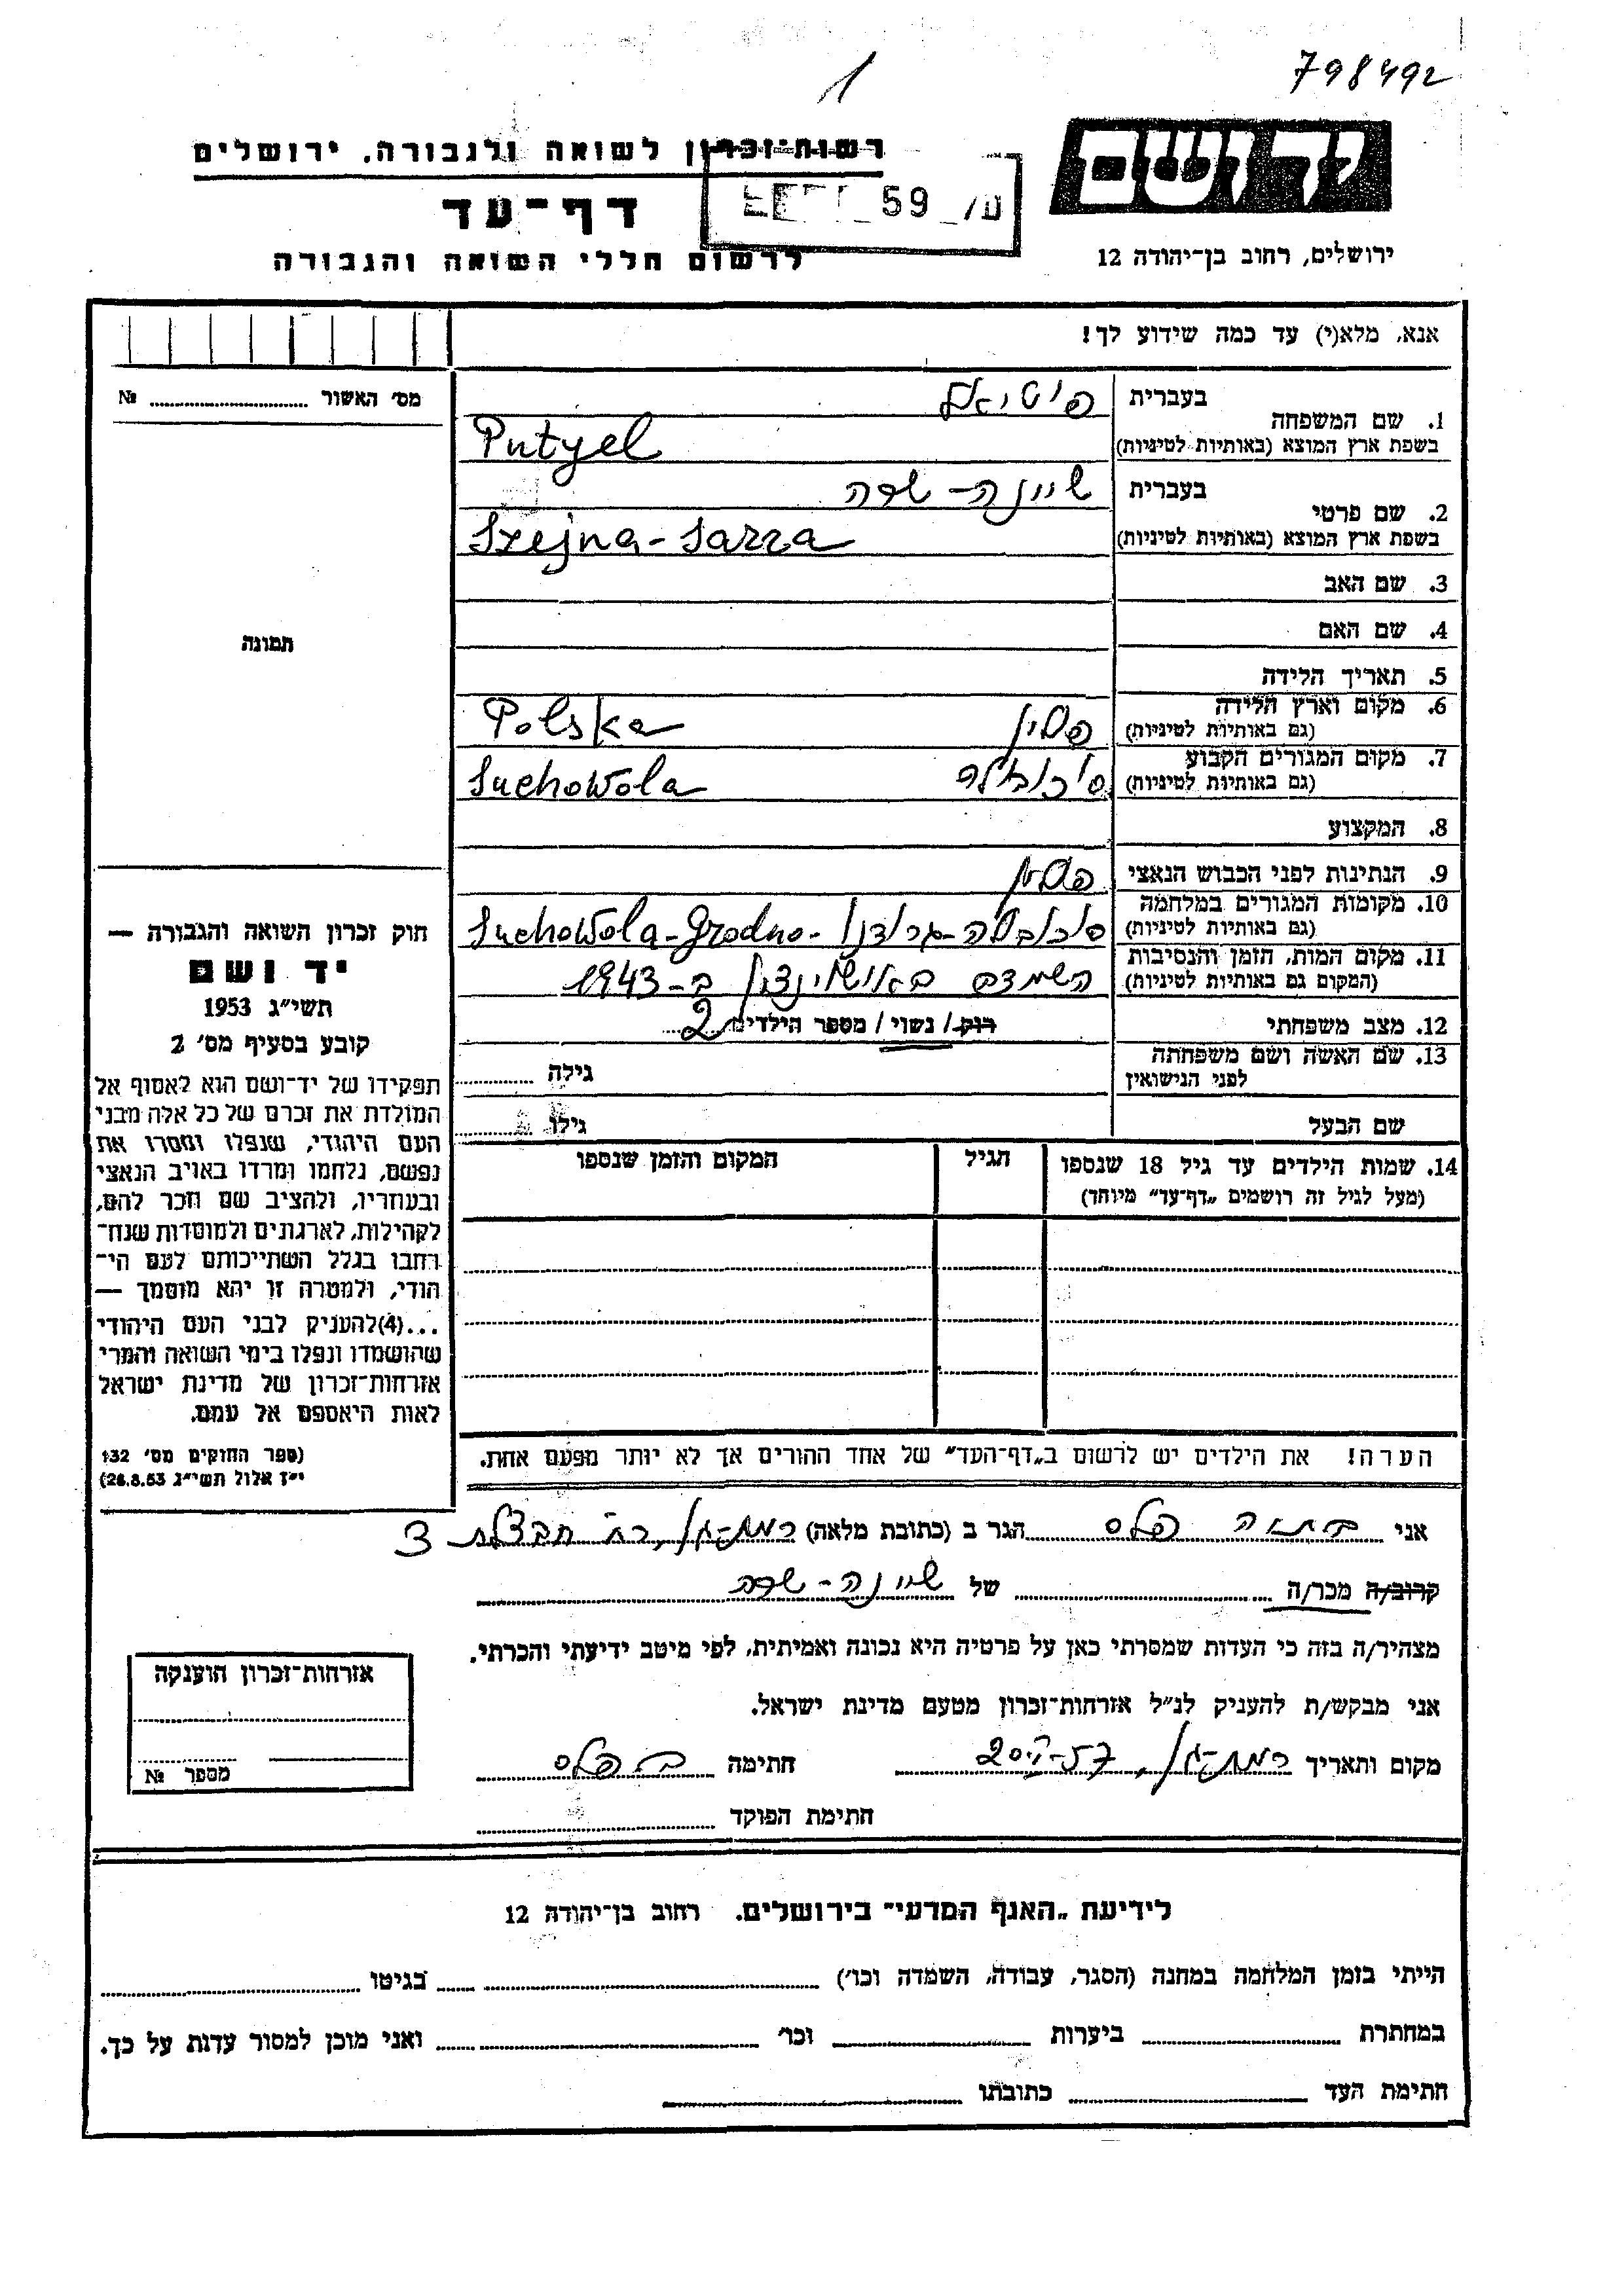 1
798492
יד ושם
ירושלים, רחוב בן־יהודה 12
רשות־זכרון לשואה ולגבורה, ירושלים
59
דף־עד
לרשום חללי השואה והגבורה
אנא, מלא(י) עד כמה שידוע לך!
1. שם המשפחה
בעברית
פוטיאל
בשפת ארץ המוצא (באותיות לטיניות)
Putyel
2. שם פרטי
בעברית
שיינה-שרה
בשפת ארץ המוצא (באותיות לטיניות)
Szejna-Sarra
3. שם האב
4. שם האם
5. תאריך הלידה
6. מקום וארץ הלידה
(גם באותיות לטיניות)
פולין Polska
7. מקום המגורים הקבוע
(גם באותיות לטיניות)
סוכובולה Suchowola
8. המקצוע
9. הנתינות לפני הכבוש הנאצי
פולין
10. מקומות המגורים במלחמה
(גם באותיות לטיניות)
סוכובולה-גרודנו Suchowola-Grodno-
11. מקום המות, הזמן והנסיבות
(המקום גם באותיות לטיניות)
ב-1943
12. מצב משפחתי
רוק/ נשוי/ מספר הילדים 2
13. שם האשה ושם משפחתה
לפני הנישואין
גילה
שם הבעל
גילו
14. שמות הילדים עד גיל 18 שנספו
(מעל לגיל זה רושמים „דף־עד" מיוחד)
הגיל
המקום והזמן שנספו
הערה! את הילדים יש לרשום ב„דף־העד" של אחד ההורים אך לא יותר מפעם אחת.
מס' האשור №
תמונה
חוק זכרון השואה והגבורה —
יד ושם
תשי״ג 1953
קובע בסעיף מס' 2
תפקידו של יד־ושם הוא לאסוף אל
המולדת את זכרם של כל אלה מבני
העם היהודי, שנפלו ומסרו את
נפשם, נלחמו ומרדו באויב הנאצי
ובעוזריו, ולהציב שם וזכר להם,
לקהילות, לארגונים ולמוסדות שנח־
רבו בגלל השתייכותם לעם הי־
הודי, ולמטרה זו יהא מוסמך —
...(4)להעניק לבני העם היהודי
שהושמדו ונפלו בימי השואה והמרי
אזרחות־זכרון של מדינת ישראל
לאות היאספם אל עמם.
(ספר החוקים מס' 132
י״ז אלול תשי״ג 28.8.53)
אני פלס הגר ב (כתובת מלאה) רמת-גן, רח' חבצלת 3
קרוב/ה מכר/ה של שיינה-שרה
מצהיר/ה בזה כי העדות שמסרתי כאן על פרטיה היא נכונה ואמיתית, לפי מיטב ידיעתי והכרתי.
אני מבקש/ת להעניק לנ״ל אזרחות־זכרון מטעם מדינת ישראל.
מקום ותאריך רמת-גן, חתימה ב פלס
חתימת הפוקד
אזרחות־זכרון הוענקה
מספר №
לידיעת „האגף המדעי" בירושלים. רחוב בן־יהודה 12
הייתי בזמן המלחמה במחנה (הסגר, עבודה, השמדה וכו') בגיטו
במחתרת ביערות וכו' ואני מוכן למסור עדות על כך.
חתימת העד כתובתו